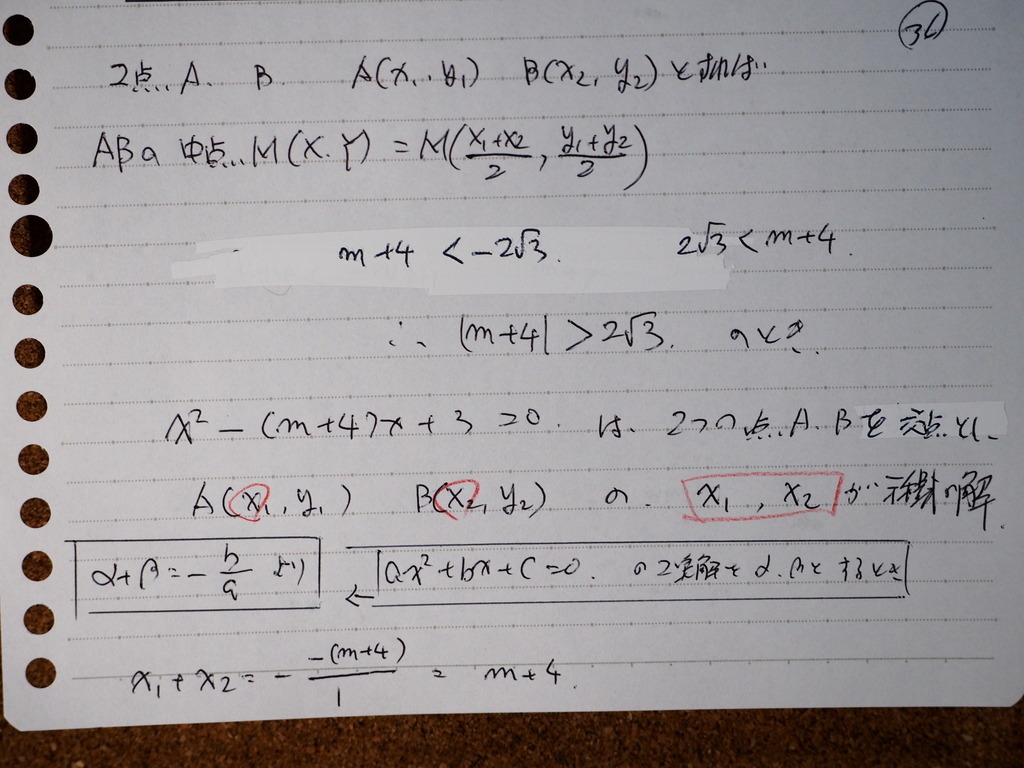 36
2点 A. B. A(x₁, y₁) B(x₂, y₂) とすれば
ABの 中点 M(X. Y) = M((x₁+x₂)/2, (y₁+y₂)/2)
m+4 < -2√3. 2√3 < m+4.
∴ |m+4| > 2√3. のとき.
x² - (m+4)x + 3 = 0. は. 2つの点 A. B を 交点とし、
A(x₁, y₁) B(x₂, y₂) の. x₁, x₂ が の解.
α+β = -b/a より ← ax²+bx+c=0. の2実解を α. βと するとき
x₁ + x₂ = - -(m+4)/1 = m+4.